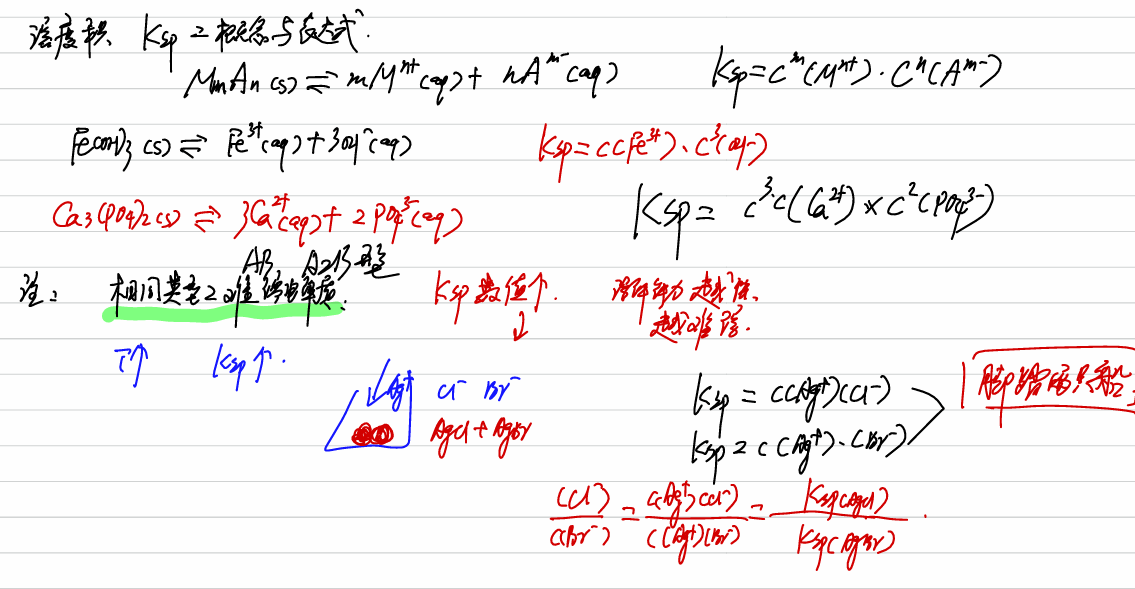 溶度积 Ksp 之概念与表达式.
MmAn (s) ⇌ mMⁿ⁺(aq) + nAᵐ⁻(aq) Ksp = cᵐ(Mⁿ⁺)·cⁿ(Aᵐ⁻)
Fe(OH)₃ (s) ⇌ Fe³⁺(aq) + 3OH⁻(aq) Ksp = c(Fe³⁺)·c³(OH⁻)
Ca₃(PO₄)₂(s) ⇌ 3Ca²⁺(aq) + 2PO₄³⁻(aq) Ksp = c³·c(Ca²⁺) × c²(PO₄³⁻)
AB A2B型
注: 相同类型之难溶电解质. Ksp数值↓ 溶解能力越弱、
越难溶.
T↑ Ksp↑.
Ag⁺ Cl⁻ Br⁻
AgCl + AgBr
Ksp = c(Ag⁺)c(Cl⁻)
Ksp = c(Ag⁺)·c(Br⁻)
脚踏两只船
c(Cl⁻)/c(Br⁻) = c(Ag⁺)c(Cl⁻)/c(Ag⁺)c(Br⁻) = Ksp(AgCl)/Ksp(AgBr).